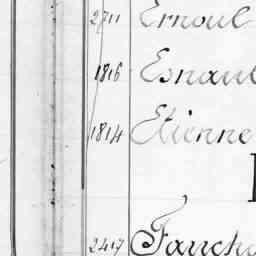 2711 Ernoul
1816 Esnaul
1814 Etienne
2417 Fauch